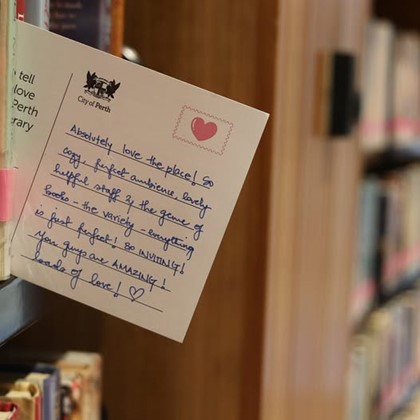 tell
love
Perth
rary
City of Perth
Absolutely love the place! So
cozy, perfect ambience, lovely
helpful staff & the genre of
books – the variety – everything
is just perfect! SO INVITING!
You guys are AMAZING!
Loads of love! ♡